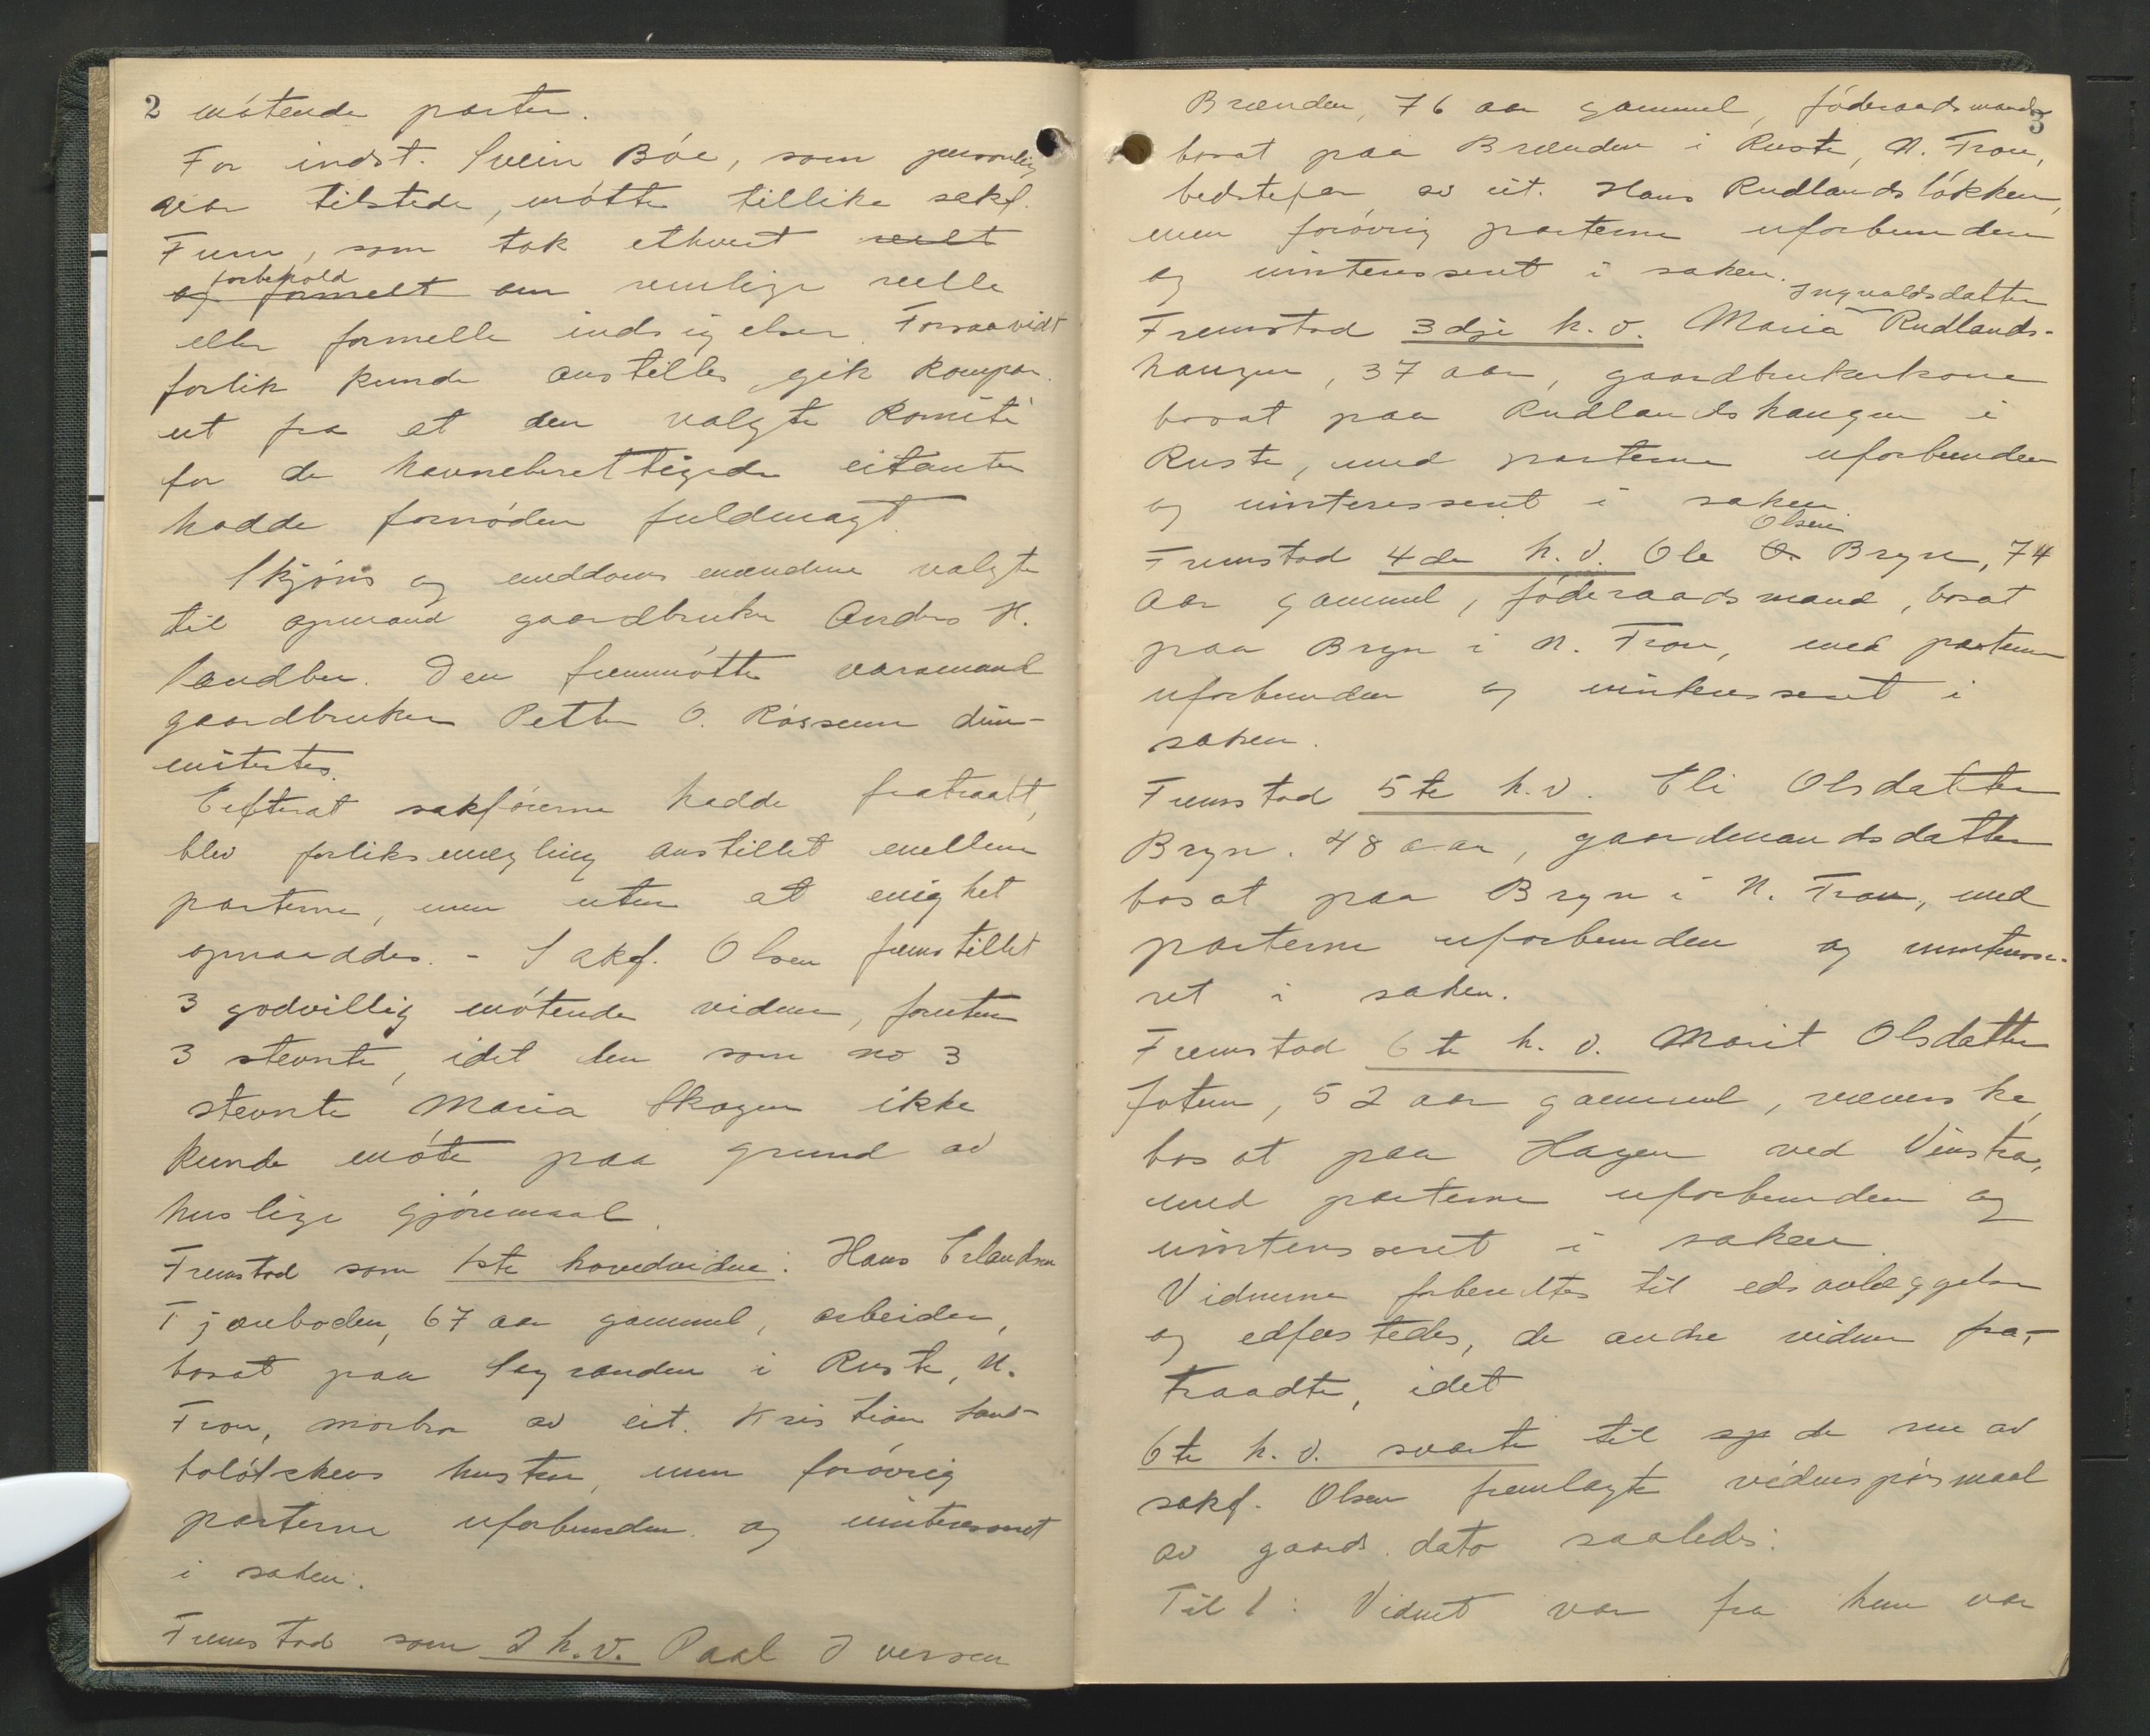 2 møtende parter.
For indst. Svein Bøe, som personlig
var tilstede, møtte tillike sakf.
Furu, som tok ethvert reelt
og formelt forbehold om rimlige reelle
eller formelle indsigelser. Forsaavidt
forlik kunde anstilles gik kompar.
ut fra at den valgte komité
for de havneberettigede citanter
hadde fornøden fuldmagt.
Skjøns og meddoms mændene valgte
til opmand gaardbruker Anders H.
Sandbu. Den fremmøtte varamand
gaardbruker Petter O. Røssum dim-
mitertes.
Efterat sakførerne hadde fratraatt,
blev forliksmegling anstillet mellem
parterne, men uten at enighet
opnaaddes. - Sakf. Olsen fremstillet
3 godvillig møtende vidner, foruten
3 stevnte, idet den som no 3
stevnte Maria Skogen ikke
kunde møte paa grund av
huslige gjøremaal.
Fremstod som 1ste hovedvidne: Hans Erlandsen
Tjønboden, 67 aar gammel, arbeider,
bosat paa Sagranden i Ruste, N.
Fron, morbror av cit. Kristian
hustru, men forøvrig
parterne uforbunden og uinteressert
i saken.
Fremstod som 2 h.v. Paal Iversen
3
Brænden, 76 aar gammel, føderaadsmand
bosat paa Brænden i Ruste, N. Fron,
bedstefar av cit. Hans Rudlandsløkken,
men forøvrig parterne uforbunden
og uinteressert i saken.
Fremstod 3dje h.v. Maria Ingvaldsdatter Rudlands-
haugen, 37 aar, gaardbrukerkone
bosat paa Rudlandshaugen i
Ruste, med parterne uforbunden
og uinteressert i saken.
Fremstod 4de h.v. Ole O. Olsen Bryn, 74
aar gammel, føderaadsmand, bosat
paa Bryn i N. Fron, med parterne
uforbunden og uinteressert i
saken.
Fremstod 5te h.v. Eli Olsdatter
Bryn. 48 aar, gaardmandsdatter
bosat paa Bryn i N. Fron, med
parterne uforbunden og uinteresse-
ret i saken.
Fremstod 6te h.v. Marit Olsdatter
Jotun, 52 aar gammel, væverske,
bosat paa Hagen ved Vinstra,
med parterne uforbunden og
uinteressert i saken.
Vidnerne forberedtes til edsavlæggelse
og edfæstedes, de andre vidner fra-
traadte, idet
6te h.v. svarte til sp de nu av
sakf. Olsen fremlagte vidnespørsmaal
av gaards. dato saaledes:
Til 1: Vidnet var fra hun var